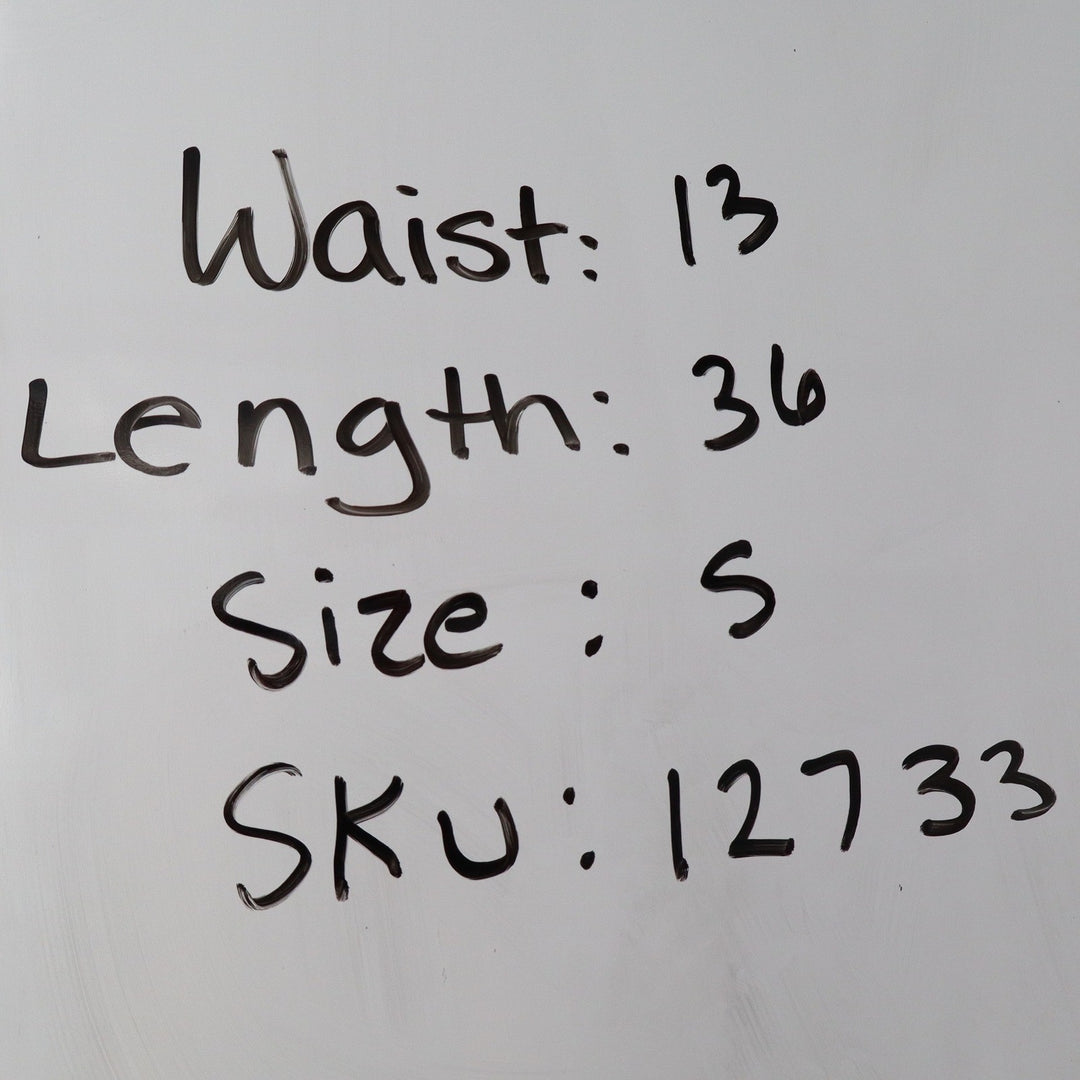 Waist: 13
Length: 36
Size: S
SKU: 12733